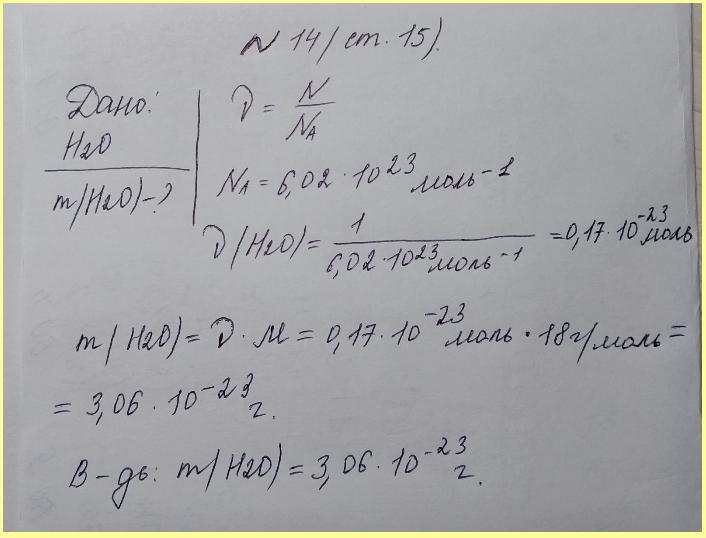 № 14 (ст. 15).
Дано:
H2O
m(H2O)-?
ν = N/NA
NA = 6,02 · 10^23 моль^-1
ν(H2O) = 1/(6,02 · 10^23 моль^-1) = 0,17 · 10^-23 моль
m(H2O) = ν · M = 0,17 · 10^-23 моль · 18 г/моль =
= 3,06 · 10^-23 г.
В-дь: m(H2O) = 3,06 · 10^-23 г.